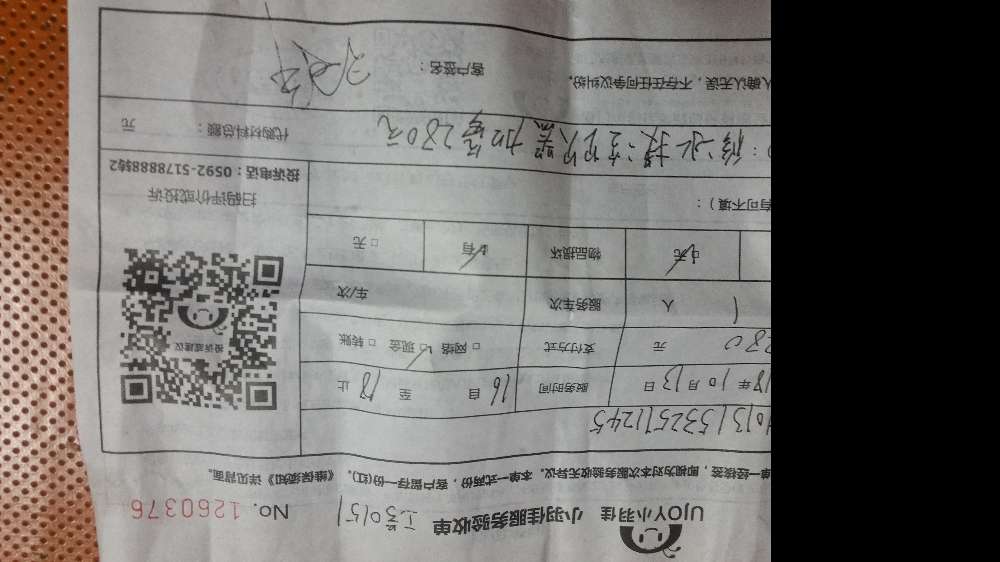 UJOY小羽佳 小羽佳服务验收单
No. 1260376
单一经核签，即视为对本次服务验收无异议。本单一式两份，客户留存一份(红)。《维保须知》详见背面。
10131532511245
18年10月13日 服务时间 16自 至 18止
280 元 支付方式 □网络 ☑现金 □转账
1 人 服务车次 车/次
☑无 物品损坏 ☑有 □无
有可不填）：
投诉或建议
扫码评价或投诉
投诉电话：0592-5178888转2
加零280元
代购材料总额： 元
人确认无误，不存在任何争议纠纷。 客户签名：